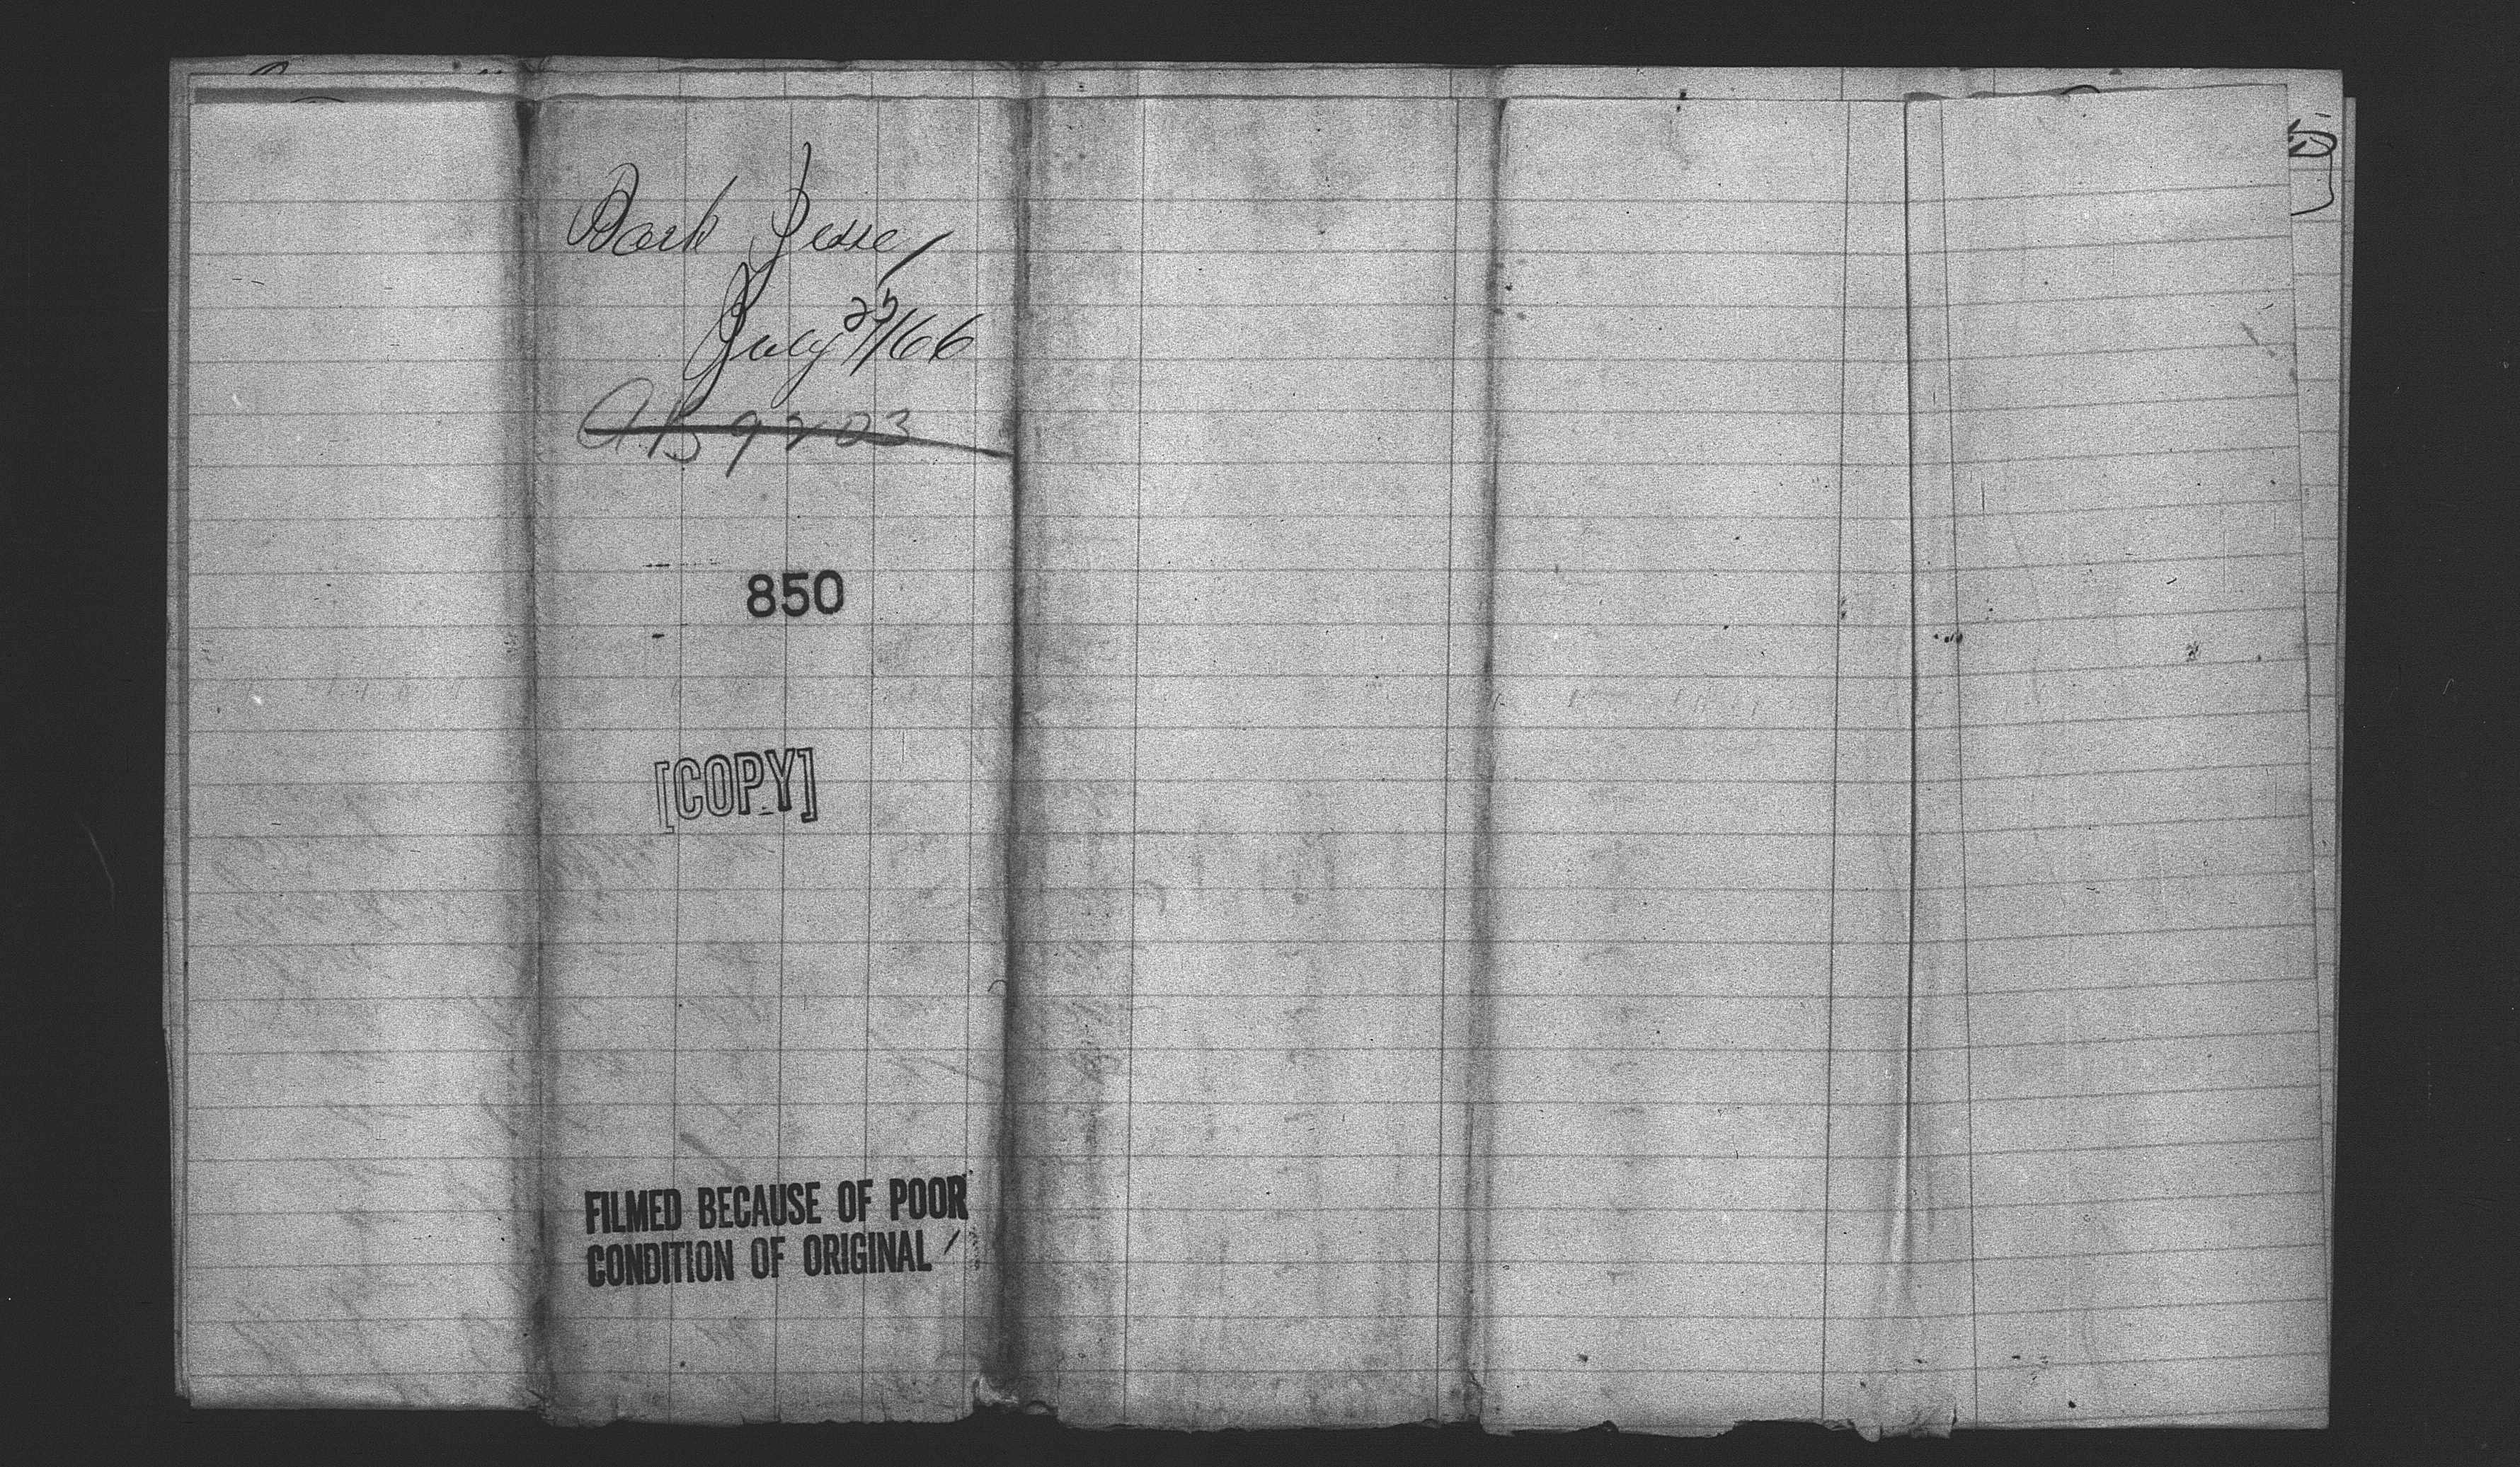 Bark Jesse
July 25/66
A.B 9203
850
[COPY]
FILMED BECAUSE OF POOR
CONDITION OF ORIGINAL